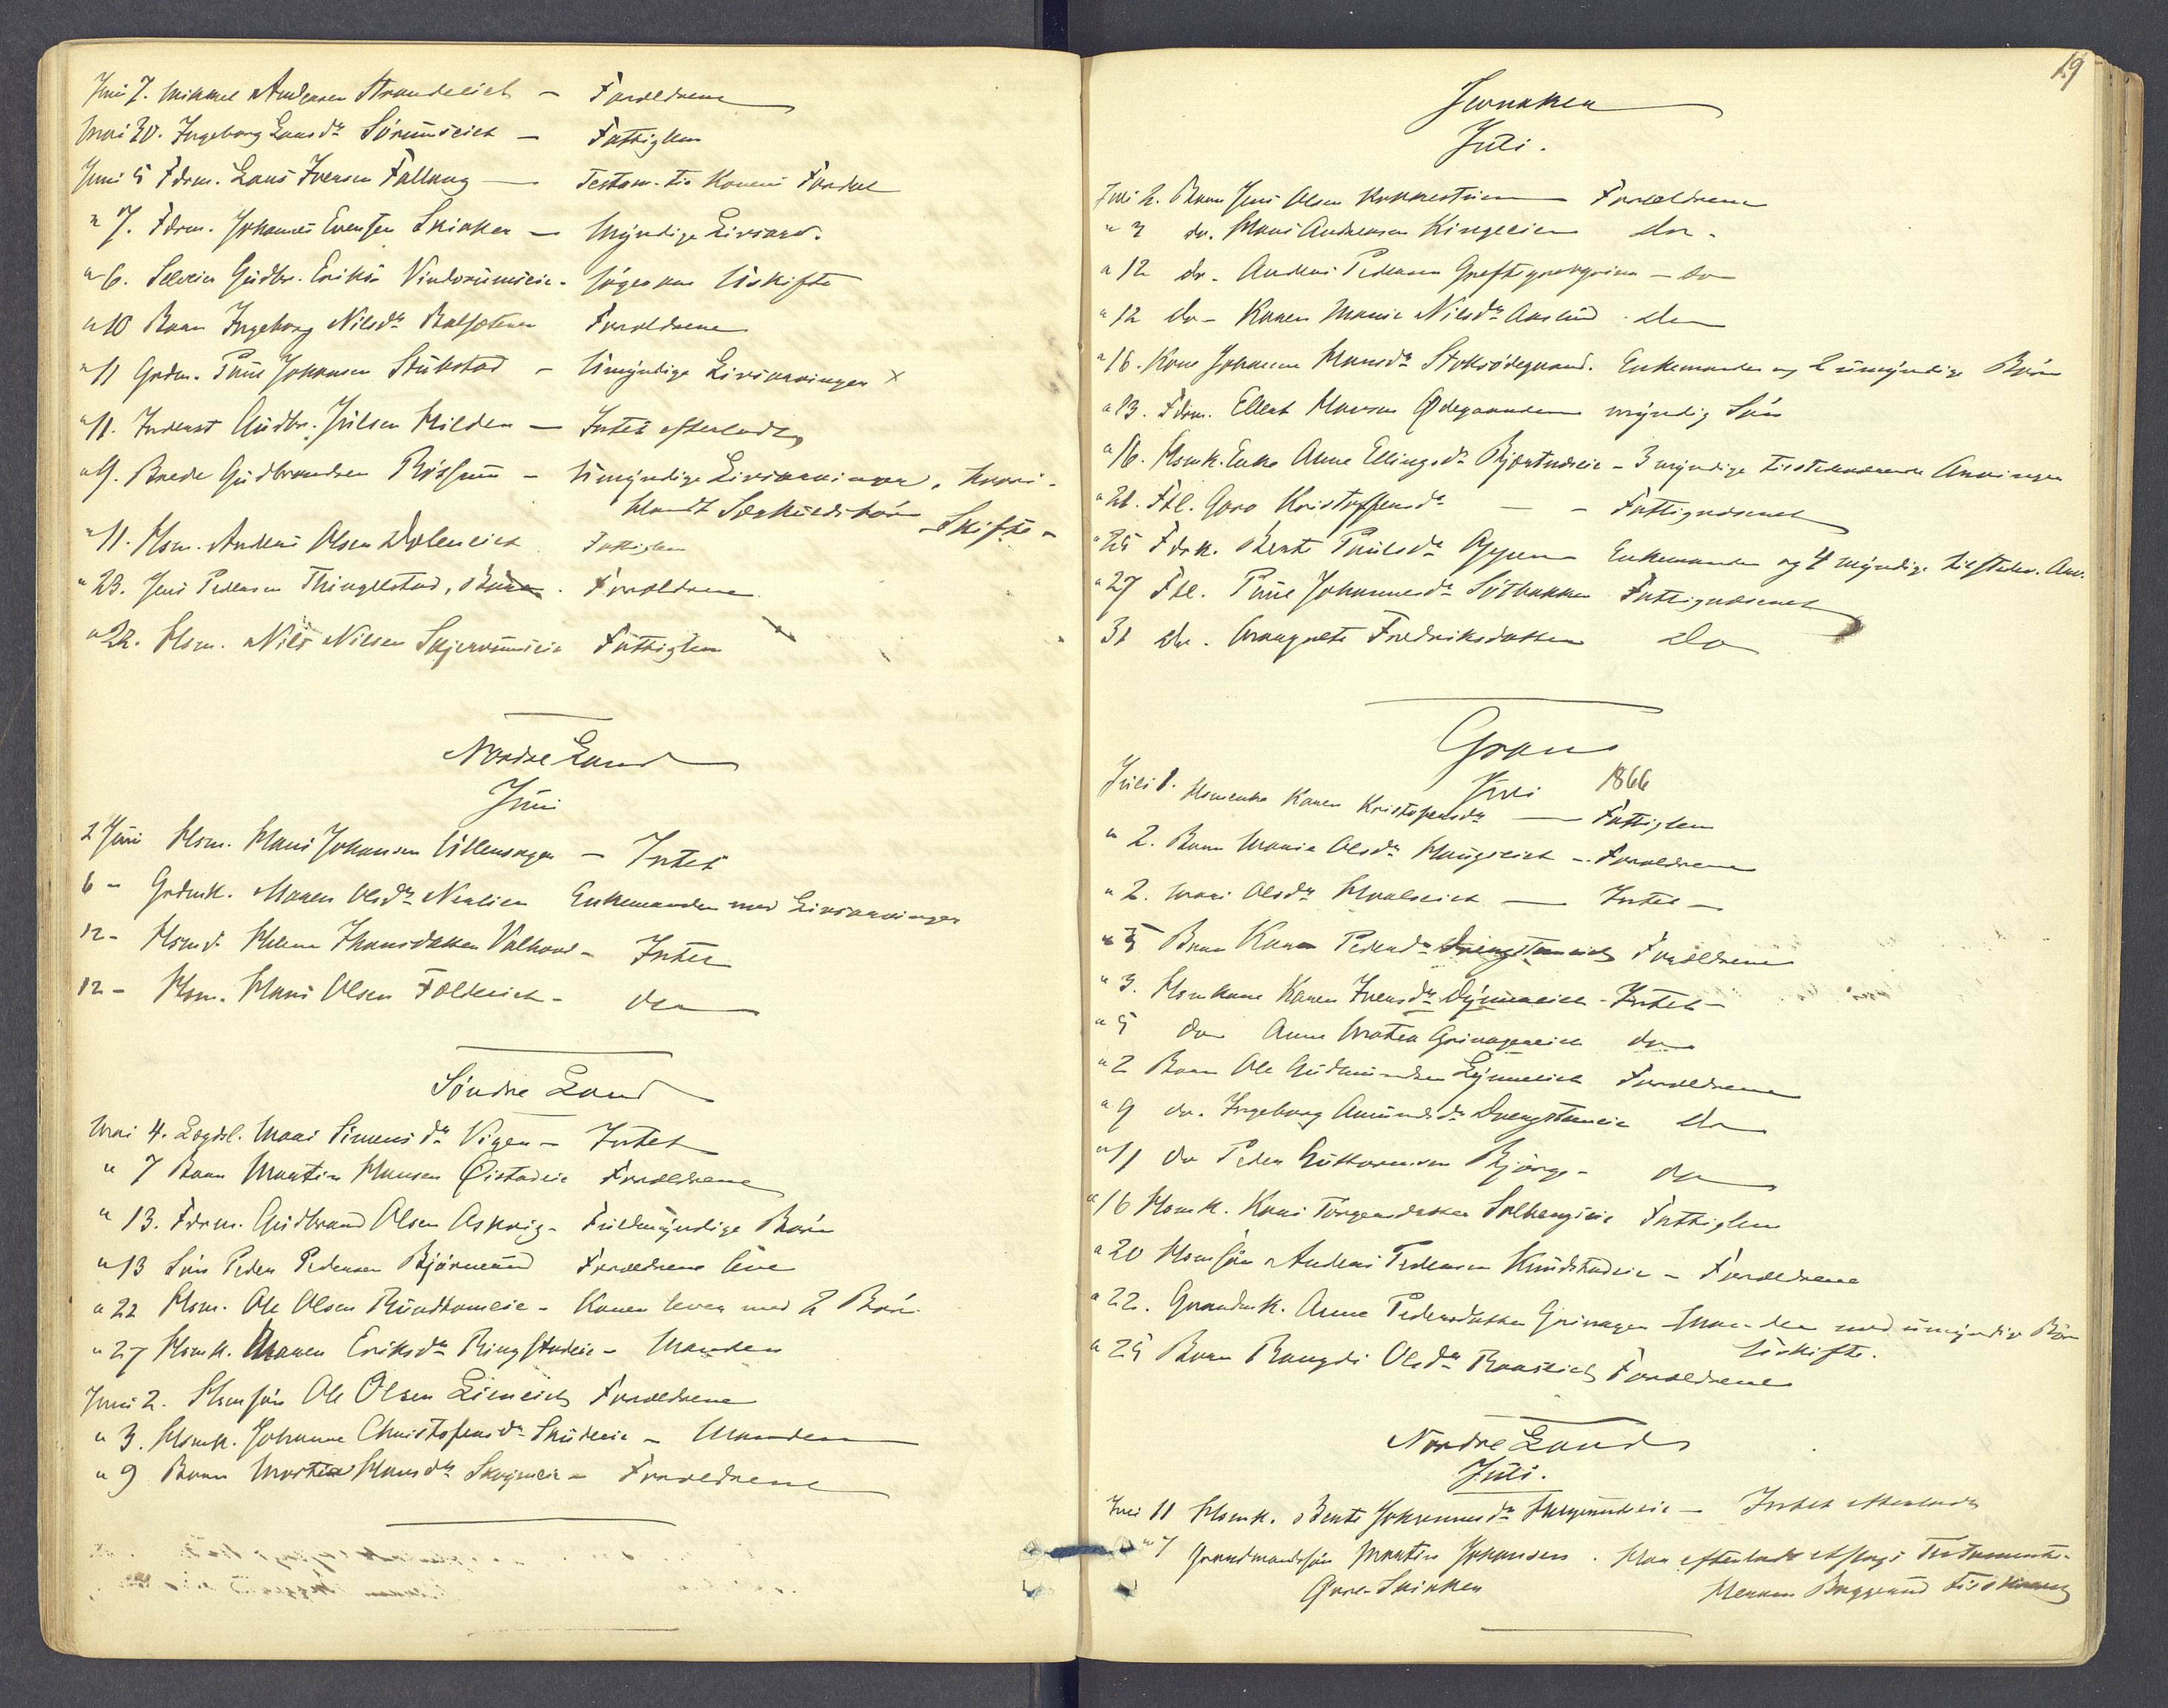 Juni 7. Mikkel Andersen Strandeiet – Forældrene
Mai 30. Ingeborg Larsdr Sörumseiet – Fattiglem
Juni 5 Fdrm. Lars Iversen Fallang — Testam. til Konens Fordel
" 7. Fdrm. Johannes Evensen Skiaker – Myndige Livsarv.
" 6. Selveier Gudbr. Eriks. Vindorumseie – söges om Uskifte
" 10 Barn Ingeborg Nilsdr Forældrene
" 11 Grdm. Paul Johansen Stubstad – Umyndige Livsarvinger x
" 11. Inderst Gudbr. Julsen Hilden — Intet efterladt
" 9. Brede Gudbrandsen Rössum – Umyndige Livsarvinger, hvori-
blandt Særkuldsbörn Skifte –
" 11. Hsm. Anders Olsen Doleneiet Fattiglem
" 23. Jens Pedersen Thingelstad, Barn. Forældrene
" 22. Hsm. Nils Nilsen Skjervumseie Fattiglem
Nordre Land
Juni
2 Juni Hsm. Hans Johansen Ullensager – Intet
6 – Grdmk. Maren Olsdr Nerlien Enkemanden med Livsarvinger
12 – Hsmd. Helene Thorsdatter Valhovd – Intet
12 – Hsm. Hans Olsen Foldeiet – do
Söndre Land
Mai 4. Lægdsl. Mari Simensdr Vigen – Intet
" 7 Barn Martin Hansen Öistadeie Forældrene
" 13. Fdrm. Gudbrand Olsen Asperig – Fuldmyndige Börn
" 13 Sön Peder Pedersen Björnerud Forældrene leve
" 22 Hsm. Ole Olsen Rundtomeie – Konen lever med 2 Börn.
" 27 Hsmk. Maren Eriksdr Ringstadeie – Manden
Juni 2. Hsmsön Ole Olsen Lieneiet Forældrene
" 3. Hsmk. Johanne Christofersdr Skudeie – Manden
" 9 Barn Martin Hansdr Sköyneie – Forældrene
19
Jevnaker
Juli.
Juli 2. Barn Jens Olsen Forældrene
" 3 do. Hans Andersen Kingeeien do.
" 12 do. Anders Pedersen – do
" 12 do – Karen Marie Nilsdr Aaslund do
" 16. Kone Johanne Hansdr Stoksödegaard. Enkemanden og 2 umyndige Börn
" 13. Fdrm. Ellert Hansen Ödegaarden myndig Sön
" 16. Hsmk. Enke Anne Ellingsdr Bjertnæseie – 3 myndige tilstedeværende Arvinger
" 21. Ftl. Goro Kristoffersdr — – Fattigvæsenet
" 25 Fdrk. Berte Paulsdr Oppen Enkemanden og 4 myndige tilstedev. Arv.
" 27 Ftl. Paul Johannesdr Sötbakken Fattigvæsenet
31 do. Margrete Fredriksdatter do
Gran
Juli 1866
Juli 1. Hsmenke Karen Kristofersdr — Fattiglem
" 2. Barn Marie Olsdr Haugseiet – Forældrene
" 2. Mari Olsdr Hvalseiet — Intet –
" 5 Barn Karen Pedersdr Drengstueneiet Forældrene
" 3. Hsmkone Karen Iversdr Dynneeiet – Intet –
" 5 do Anne Matea Grinageneiet do
" 2 Barn Ole Gudmundsen Lynneeiet Forældrene
" 9 do. Ingeborg Amundsdr Drengstueneie do
" 11 do Peder Guttormsen Björge – do
" 16 Hsmk. Kari Torgersdatter Solbergseie Fattiglem
" 20 Hsmsön Anders Pedersen Knudstadeie – Forældrene
" 22. Gaardmk. Anne Pedersdatter Grinager Manden med umyndige Börn
Uskifte.
" 25 Barn Rangdi Olsdr Raaseiet Forældrene
Nordre Land
Juli.
Juli 11 Hsmk. Berte Johannesdr – Intet efterladt
" 7 Gaardmandssön Martin Johansen. Har efterladt Testamente.
Övre-Skinken